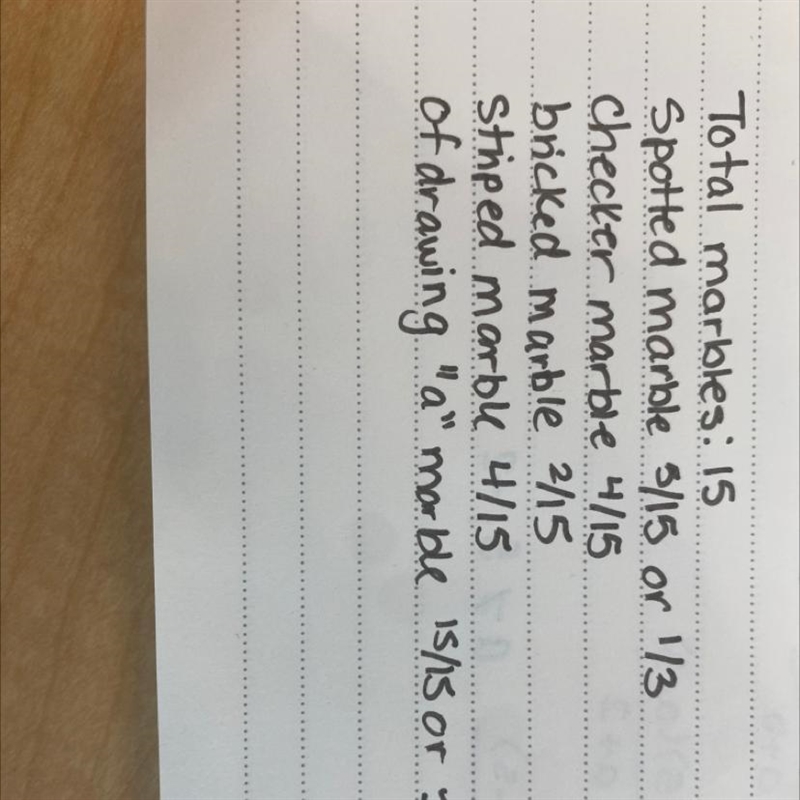 Total marbles: 15
Spotted marble 5/15 or 1/3
Checker marble 4/15
bricked marble 2/15
Striped marble 4/15
of drawing "a" marble 15/15 or